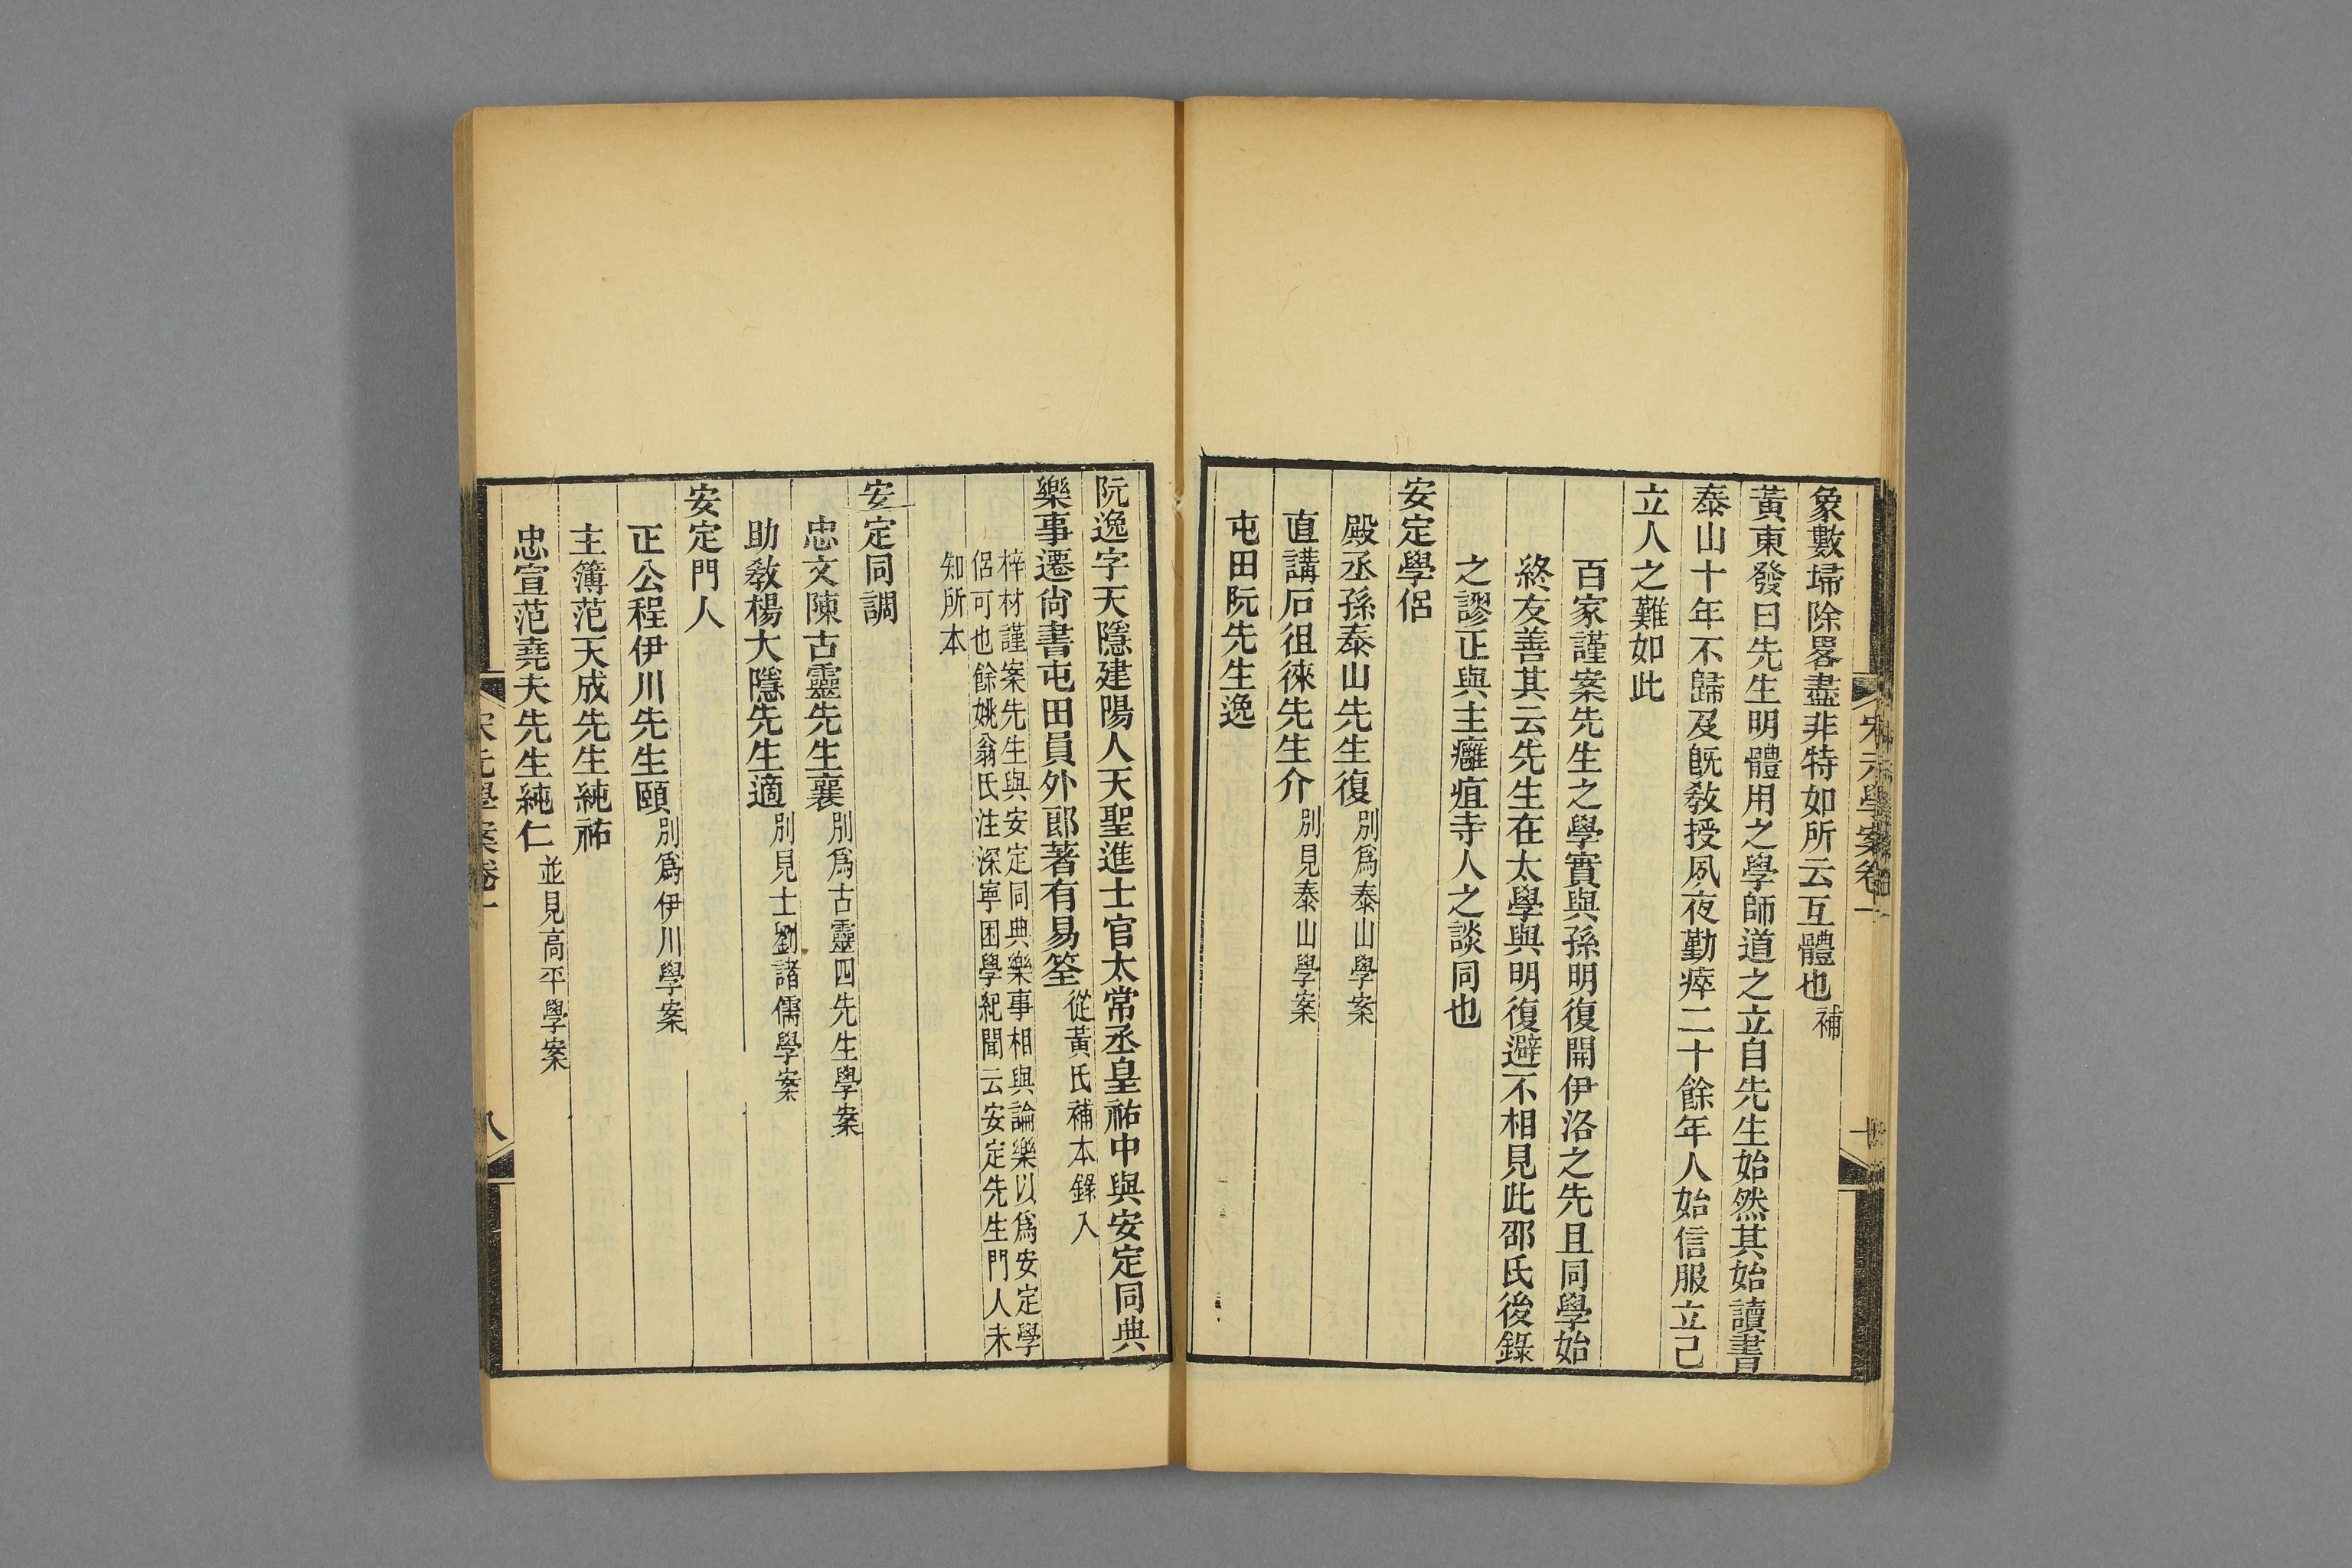 象數埽除畧盡非特如所云互體也補
黃東發曰先生明體用之學師道之立自先生始然其始讀書
泰山十年不歸及既敎授夙夜勤瘁二十餘年人始信服立己
立人之難如此
百家謹案先生之學實與孫明復開伊洛之先且同學始
終友善其云先生在太學與明復避不相見此邵氏後錄
之謬正與主癰疽寺人之談同也
安定學侶
殿丞孫泰山先生復別爲泰山學案
直講石徂徠先生介別見泰山學案
屯田阮先生逸
阮逸字天隱建陽人天聖進士官太常丞皇祐中與安定同典
樂事遷尙書屯田員外郎著有易筌從黃氏補本錄入
梓材謹案先生與安定同典樂事相與論樂以爲安定學
侶可也餘姚翁氏注深寧困學紀聞云安定先生門人未
知所本
安定同調
忠文陳古靈先生襄別爲古靈四先生學案
助敎楊大隱先生適別見士劉諸儒學案
安定門人
正公程伊川先生頤別爲伊川學案
主簿范天成先生純祐
忠宣范堯夫先生純仁並見高平學案
宋元學案卷一
八